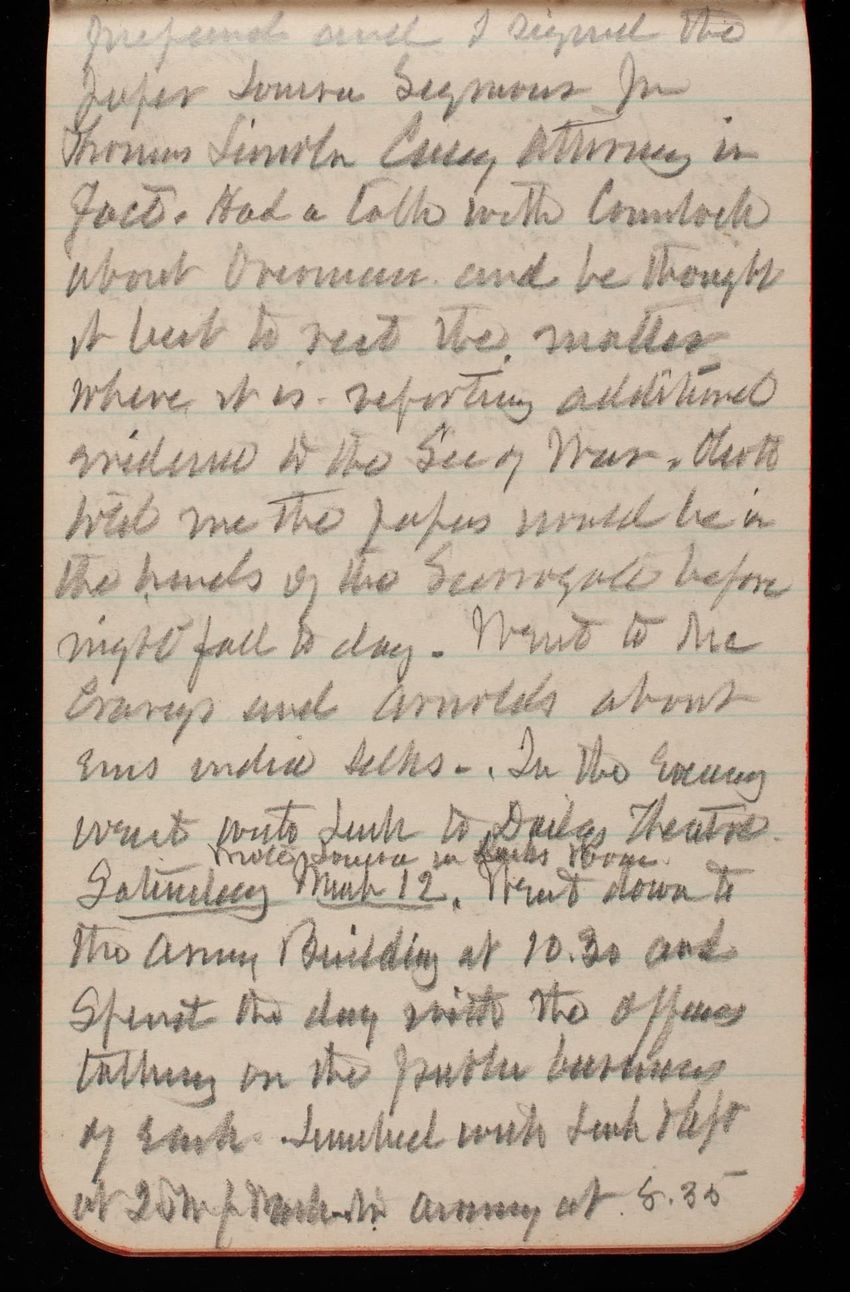 prepared and I signed the
paper Louisa Seymour Jr
Thomas Lincoln Casey Attorney in
fact. Had a talk with Comstock
about Overman and he thought
it best to rest the matter
where it is - reporting additional
evidence to the Sec of War.
told me the papers would be in
the hands of the Surrogate before
night fall to day. Went to Mc
Crarys and Arnolds about
Ems india silks - . In the Evening
went with Link to Dalys Theatre.
Louisa in Links Room
Saturday Mch 12. Went down to
the Army Building at 10.30 and
Spent the day with the officers
talking on the public business
of each. Lunched with Link & left
at arriving at 8.35